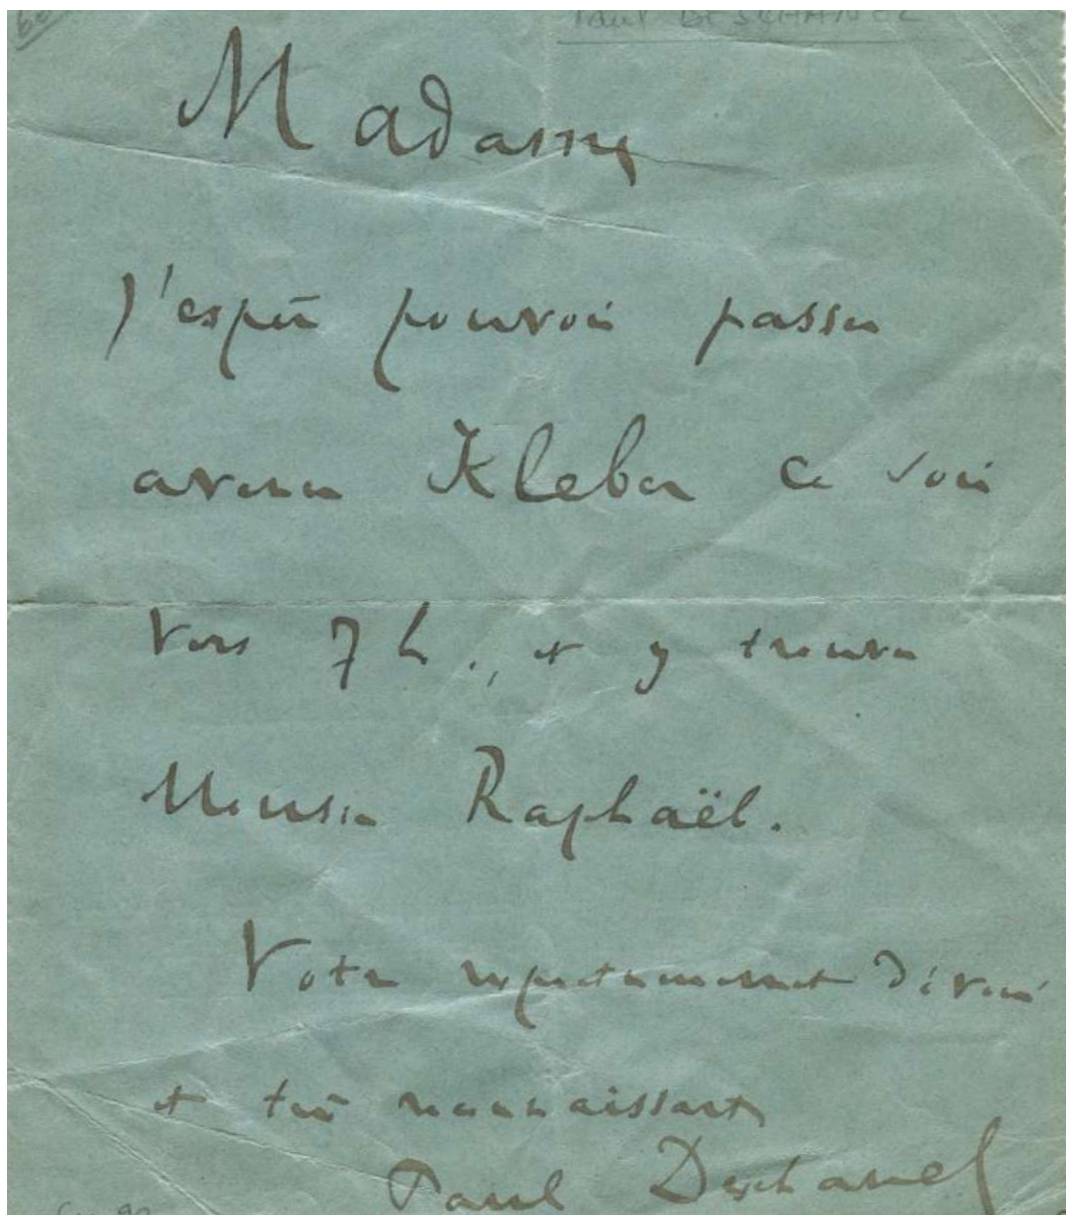 Paul DESCHANEL
Madame
J'espère pouvoir passer
avenue Kleber ce soir
vers 7 h., et y trouver
Monsieur Raphaël.
Votre respectueusement dévoué
et très reconnaissant
Paul Deschanel